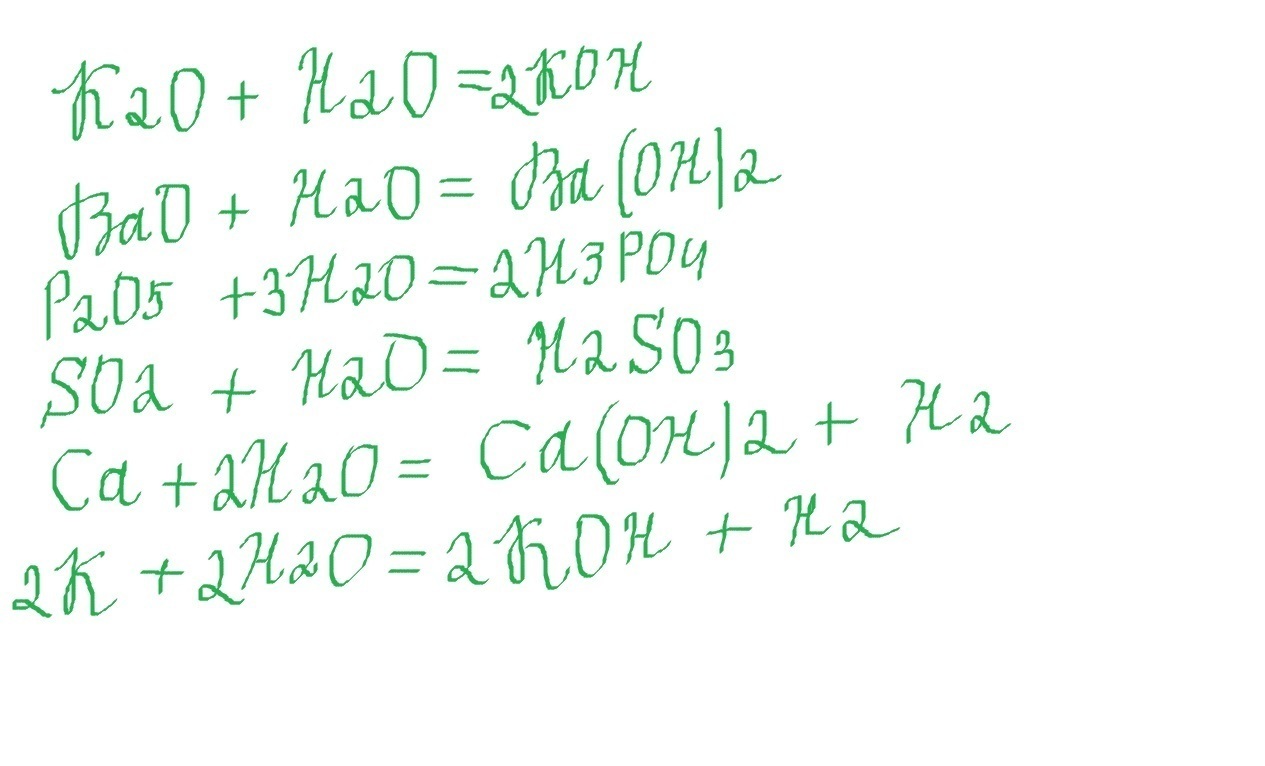 K2O + H2O = 2KOH
BaO + H2O = Ba(OH)2
P2O5 + 3H2O = 2H3PO4
SO2 + H2O = H2SO3
Ca + 2H2O = Ca(OH)2 + H2
2K + 2H2O = 2KOH + H2